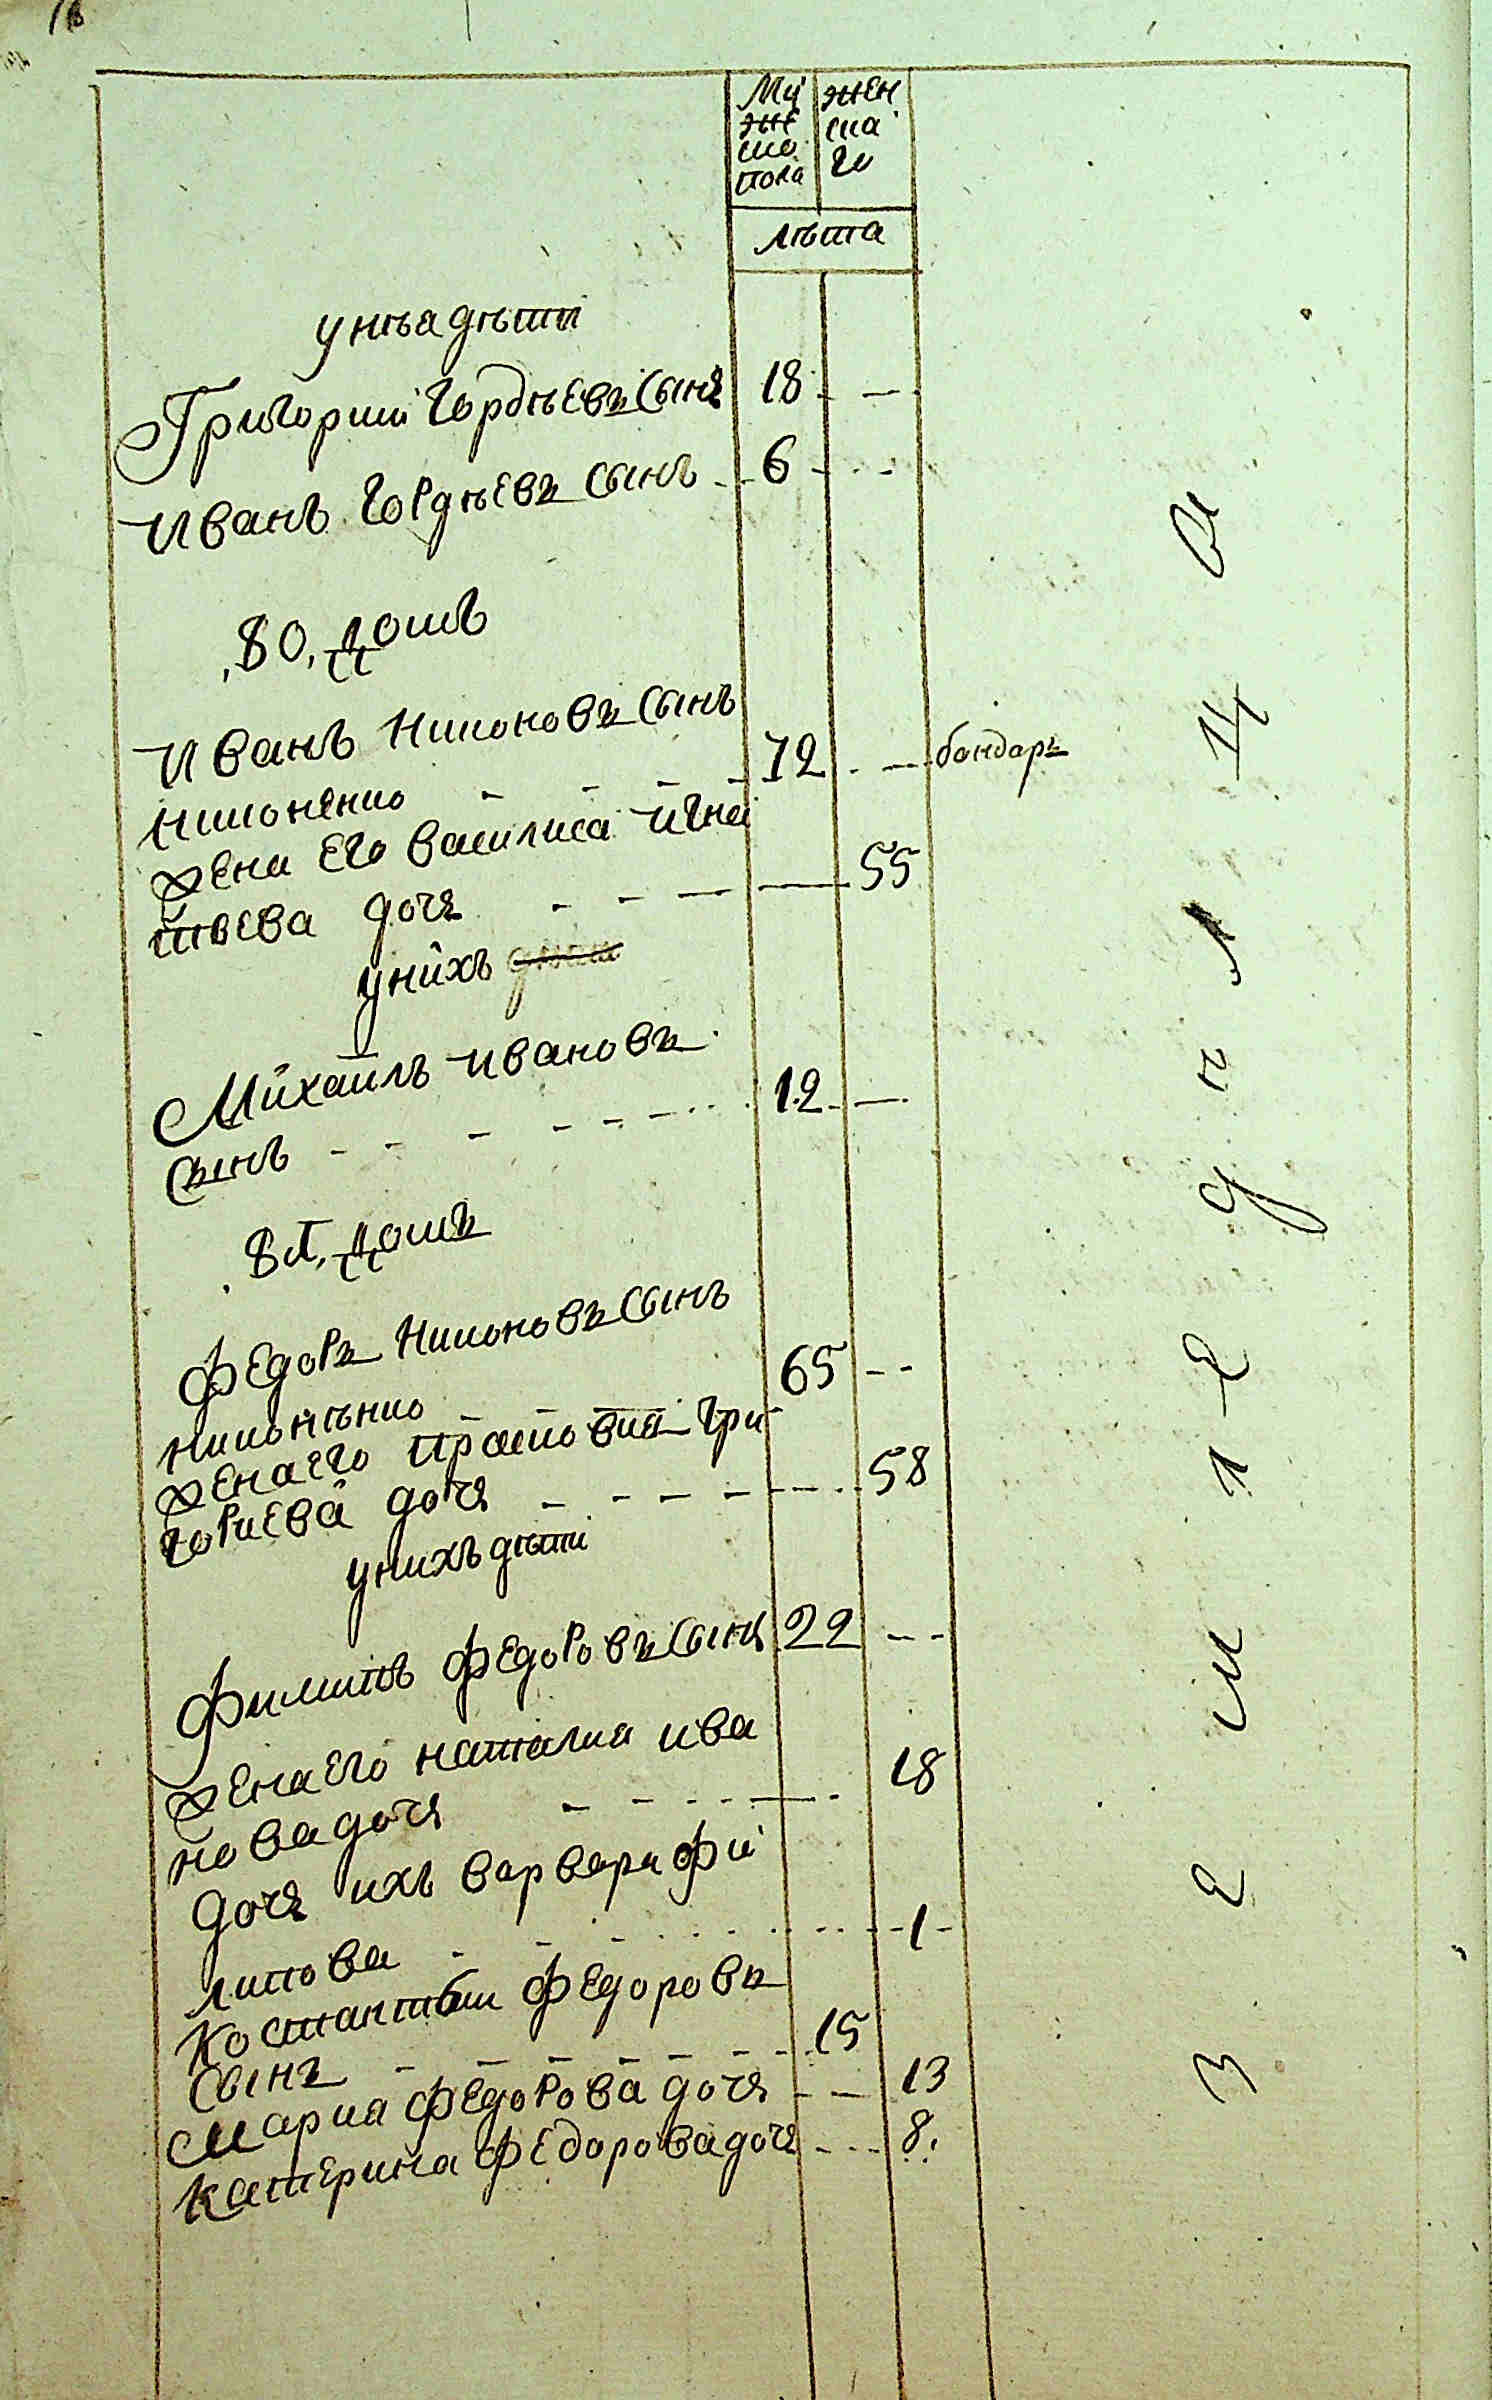 Му жен
же ска
ско го
пола
лѣта
у нѣа дѣти
Григории Гордѣевъ сынъ 18
Иванъ Гордѣевъ сынъ 6
во, домъ
Иванъ никоновъ сынъ
никоненко 72 бондарь
жена его василиса игна
твева дочъ 55
у нихъ
Михаилъ ивановъ
сынъ 12
вп, домъ
Федоръ никоновъ сынъ
никонѣнко 65
жена его прасковия гри
гориева дочъ 58
у нихъ дѣти
Филипъ Федоровъ сынъ 22
жена его наталия ива
нова дочъ 18
дочъ ихъ варвара фи
липова 1
Костантии Федоровъ
сынъ 15
мария Федорова дочъ 13
катерина Федорова дочъ 8.
земледелци